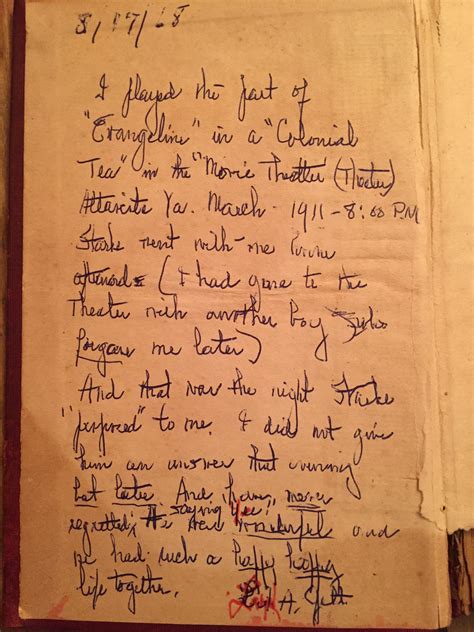 8/17/68
I played the part of
"Evangeline" in a "Colonial
Tea" in the "Movie Theatter (Theater)
Va. March 1911 - 8:00 P.M
Starke went with me home
afterwards (I had gone to the
Theater with another boy who
forgave me later)
And that was the night Starke
"proposed" to me. I did not give
him an answer that evening
but later. And have never
regretted saying "Yes". He was wonderful and
we had such a happy happy
life together.
A.